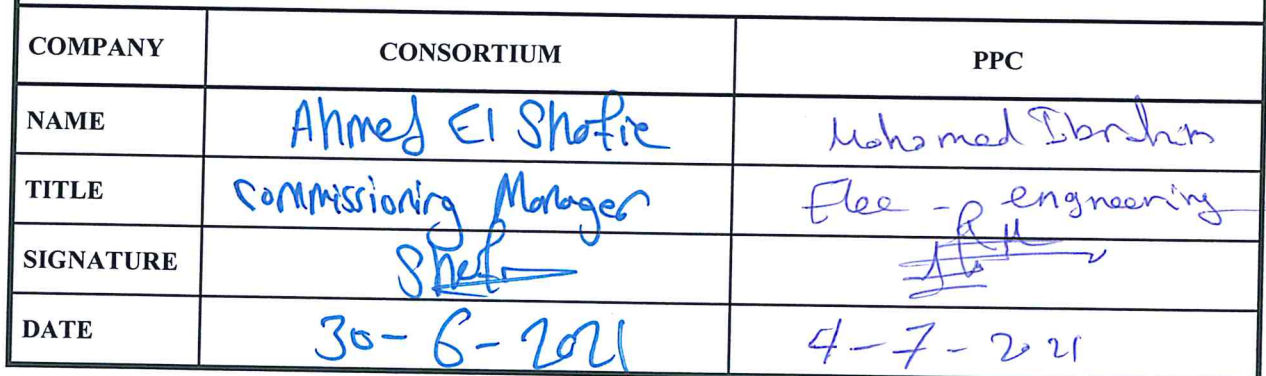 COMPANY CONSORTIUM PPC
NAME Ahmed El Shafie Mohamed Ibrahim
TITLE Commissioning Manager Elec - engneering
SIGNATURE
DATE 30-6-2021 4-7-2021